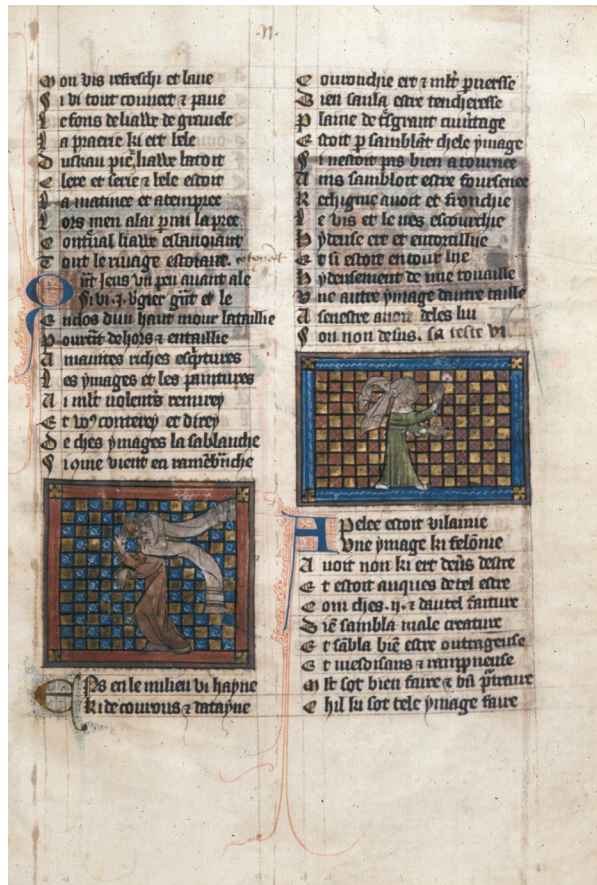 .II.
Mon vis refreschi et laue
Si vi tout couuert & paue
Le fons de liawe de grauele
La praerie ki ert bele
Duskau pie liawe batoit
Clere et serie & bele estoit
La matinee et atempree
Lors men alai pmi la pree
Contual liawe esbanoiant
Tout le riuage
Quāt jeus vn peu auant ale
Si vi .j. vgier grāt et le
Enclos dun haut mour bataillie
Pourāt dehors & entaillie
A maintes riches escptures
Les ymages et les paintures
Ai mlt volentrs remirey
Et vos conterey et direy
De ches ymages la sablanche
Si ome vient en ramēbrāche
Ens en le milieu vi hayne
Ki de courous & datayne
Courouchie ert & mlt puersse
Bien sanla estre tencheresse
Plaine de grant cuuertage
Estoit p samblāt chele ymage
Si nestoit pas bien atournee
Ains sambloit estre foursenee
Rechignie auoit et fronchie
Le vis et le nes escourchie
Hydeuse ert et entoraillie
Et si estoit entour lije
Hydeusement de vne touaille
Vne autre ymage dautre taille
A senestre auoit deles lui
Son non desus sa teste vi
Apelee estoit vilainie
Vne ymage ki felonie
Auoit non ki ert deūs destre
Et estoit auques de tel estre
Com ches .ij. & dautel faiture
Biē sambla male creature
Et sābla biē estre outrageuse
Et mesdisans & ramponeuse
Mlt sot bien faire & bn ptraire
Chil ki sot tele ymage faire